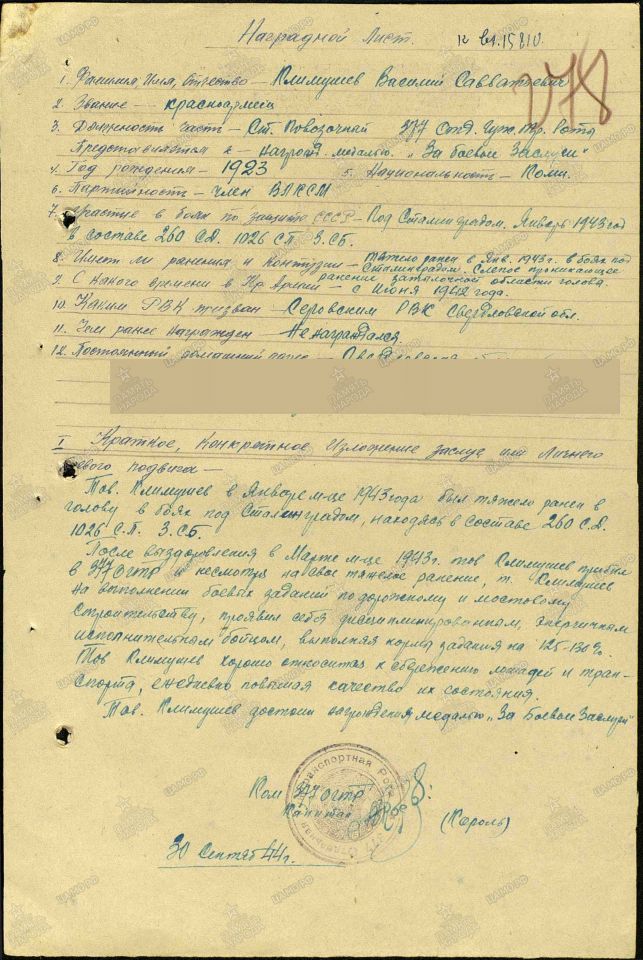 Наградной Лист. к вх. 15810.
278
1. Фамилия, Имя, Отчество — Климушев Василий Савватьевич
2. Звание — красноармеец
3. Должность часть — Ст. Повозочный 377 Отд. Гуж. Тр. Рота
Представляется к — наград. медалью. „За боевые Заслуги"
4. Год рождения — 1923 5. Национальность — Коми.
6. Партийность — член ВЛКСМ
7. Участие в боях по защите СССР — Под Сталинградом. Январь 1943 год
в составе 260 С.Д. 1026 С.П. 3. С.Б.
8. Имеет ли ранения и контузии — тяжело ранен в Янв. 1943 г. в боях под
Сталинградом. Слепое проникающее
ранение затылочной области голова.
9. С какого времени в Кр. Армии — с Июня 1942 года.
10. Каким РВК призван — Серовским РВК Свердловской обл.
11. Чем ранее награжден — Не награждался
12. Постоянный домашний
I Краткое, конкретное Изложение заслуг или Личного
боевого подвига —
Тов. Климушев в Январе м-це 1943 года был тяжело ранен в
голову в боях под Сталинградом, находясь в составе 260 С.Д.
1026 С.П. 3. С.Б.
После выздоровления в Марте м-це 1943 г. тов Климушев прибыл
в 377 ОГТР и несмотря на свое тяжелое ранение, т. Климушев
на выполнении боевых заданий по дорожному и мостовому
строительству, проявил себя дисциплинированным, энергичным
исполнительным бойцом, выполняя нормы задания на 125-130%.
Тов Климушев хорошо относится к сбережению лошадей и тран-
спорта, ежедневно повышая качество их состояния.
Тов. Климушев достоин награждения медалью „За Боевые Заслуги"
Ком 377 ОГТР
Капитан
(Король)
30 Сентяб 44 г.
Транспортная Рота
ПАМЯТЬ НАРОДА
ЦАМО.РФ